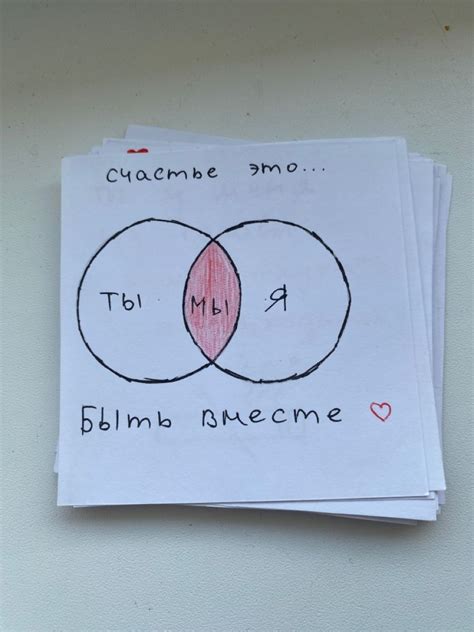 счастье это...
ты мы я
Быть вместе